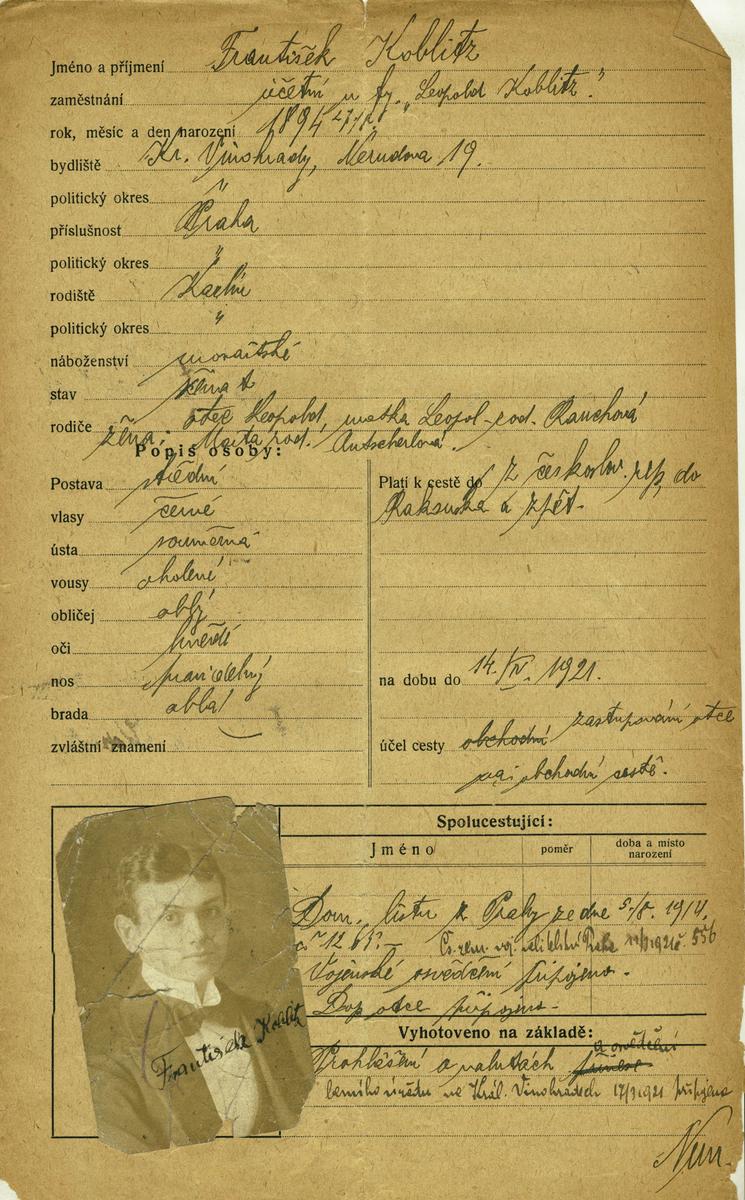 Jméno a příjmení František Koblitz
zaměstnání účetní u fy. „Leopold Koblitz."
rok, měsíc a den narození 1894
bydliště Kr. Vinohrady, Nerudova 19.
politický okres "
příslušnost Praha
politický okres "
rodiště
politický okres "
náboženství
stav ženat
rodiče otec Leopold, matka Leopol- rod. Rauchová
žena: Marta rod. Antscherlová.
Popis osoby:
Postava střední
vlasy černé
ústa souměrná
vousy oholené
obličej oblý
oči hnědé
nos pravidelný
brada oblá
zvláštní znamení —
Platí k cestě do z českoslov. rep. do
Rakouska a zpět.
na dobu do 14./IV. 1921.
účel cesty obchodní zastupování otce
obchodní cestě.
Spolucestující:
Jméno poměr doba a místo narození
Dom. listu z Prahy ze dne 5./8. 1911.
Vojenské osvědčení připojeno.
Dop otce připojeno.
Vyhotoveno na základě:
Prohlášení o valutách a osvědčení
berního úřadu ve Král. Vinohradech 17/3 1921 připojeno
František Koblitz